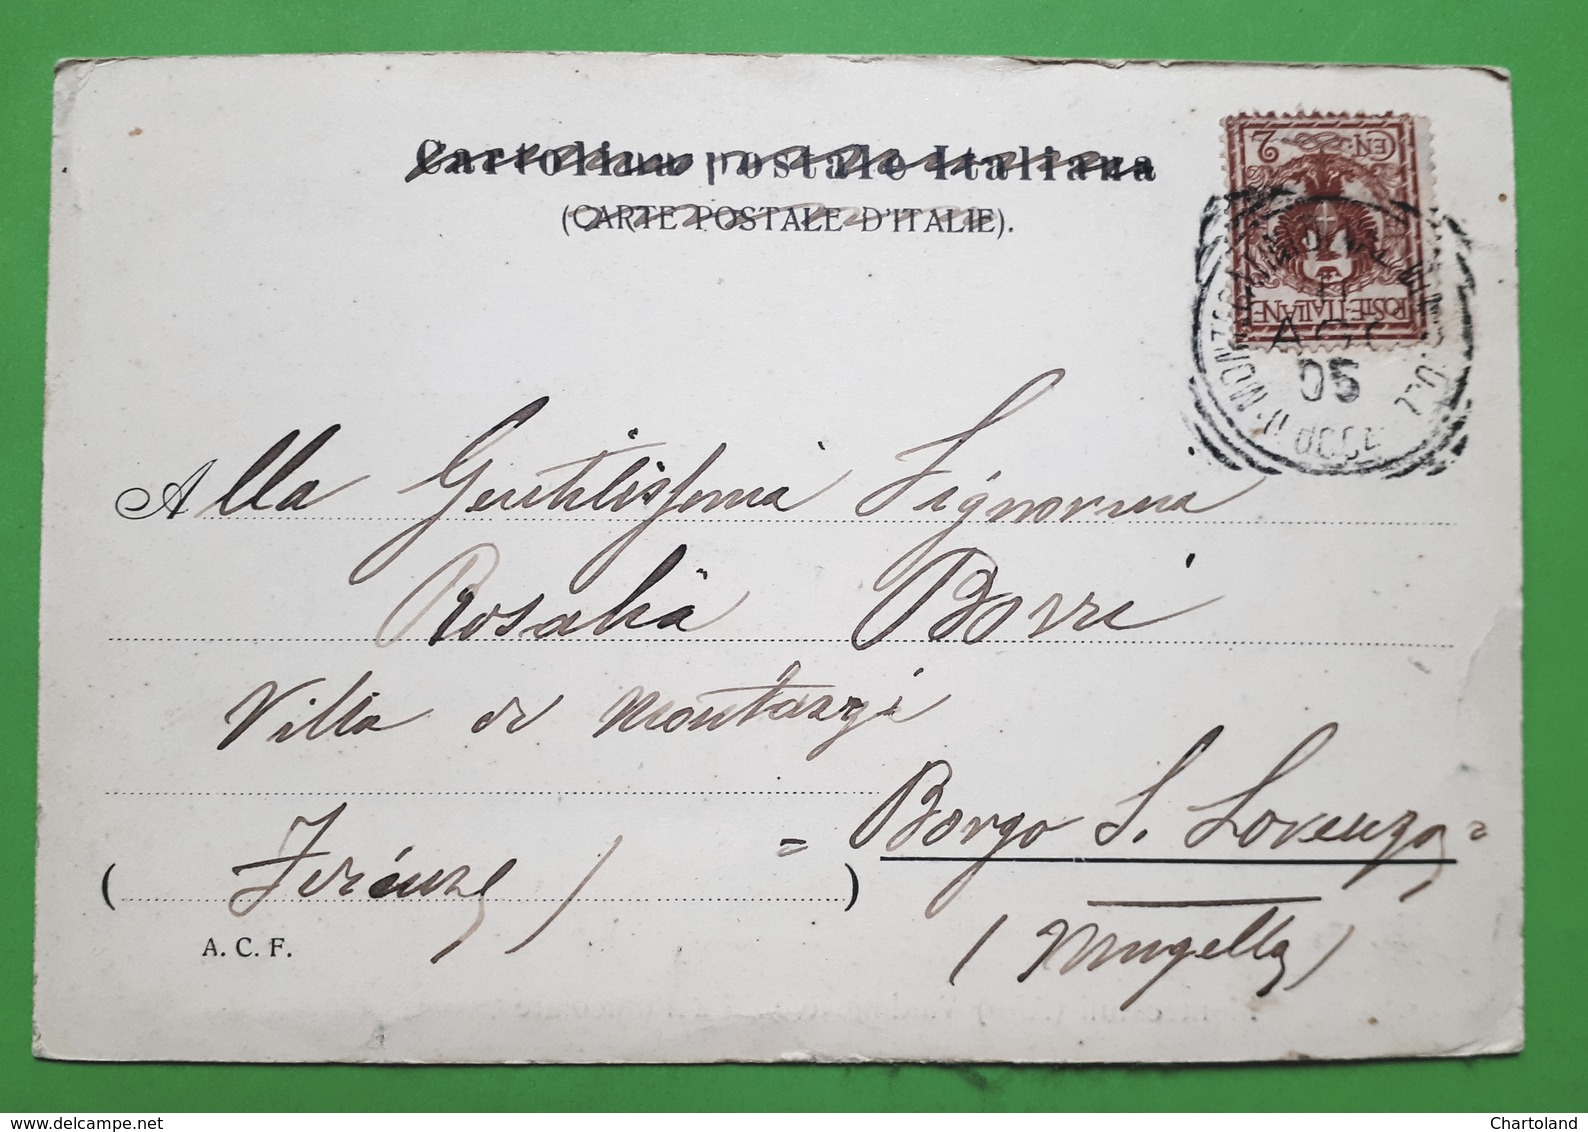 Cartolina postale Italiana
(CARTE POSTALE D'ITALIE).
CEN. 2
POSTE-ITALIANE
11
AGO
05
Alla Gentilissima Signorina
Rosalia Borri
Villa di Montazzi
= Borgo S. Lorenzo =
( Firenze )
( Mugello )
A. C. F.
www.delcampe.net
Chartoland